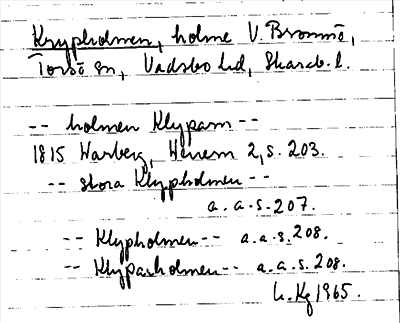 Krypholmen, holme V. Brommö,
Torsö sn, Vadsbo hd, Skarab. l.
-- holmen Klyparn --
1815 Warberg, Wenern 2, s. 203.
-- stora Klypholmen --
a. a. s. 207.
-- Klypholmen -- a. a. s. 208.
-- Klyparholmen -- a. a. s. 208.
1965.